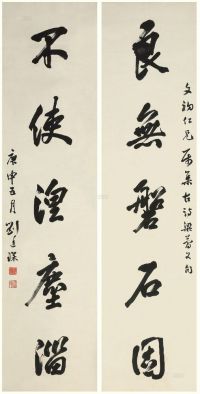 文鈞仁兄屬集古詩梁簡文句
良無磐石固
不使涅塵淄
庚申五月劉廷琛